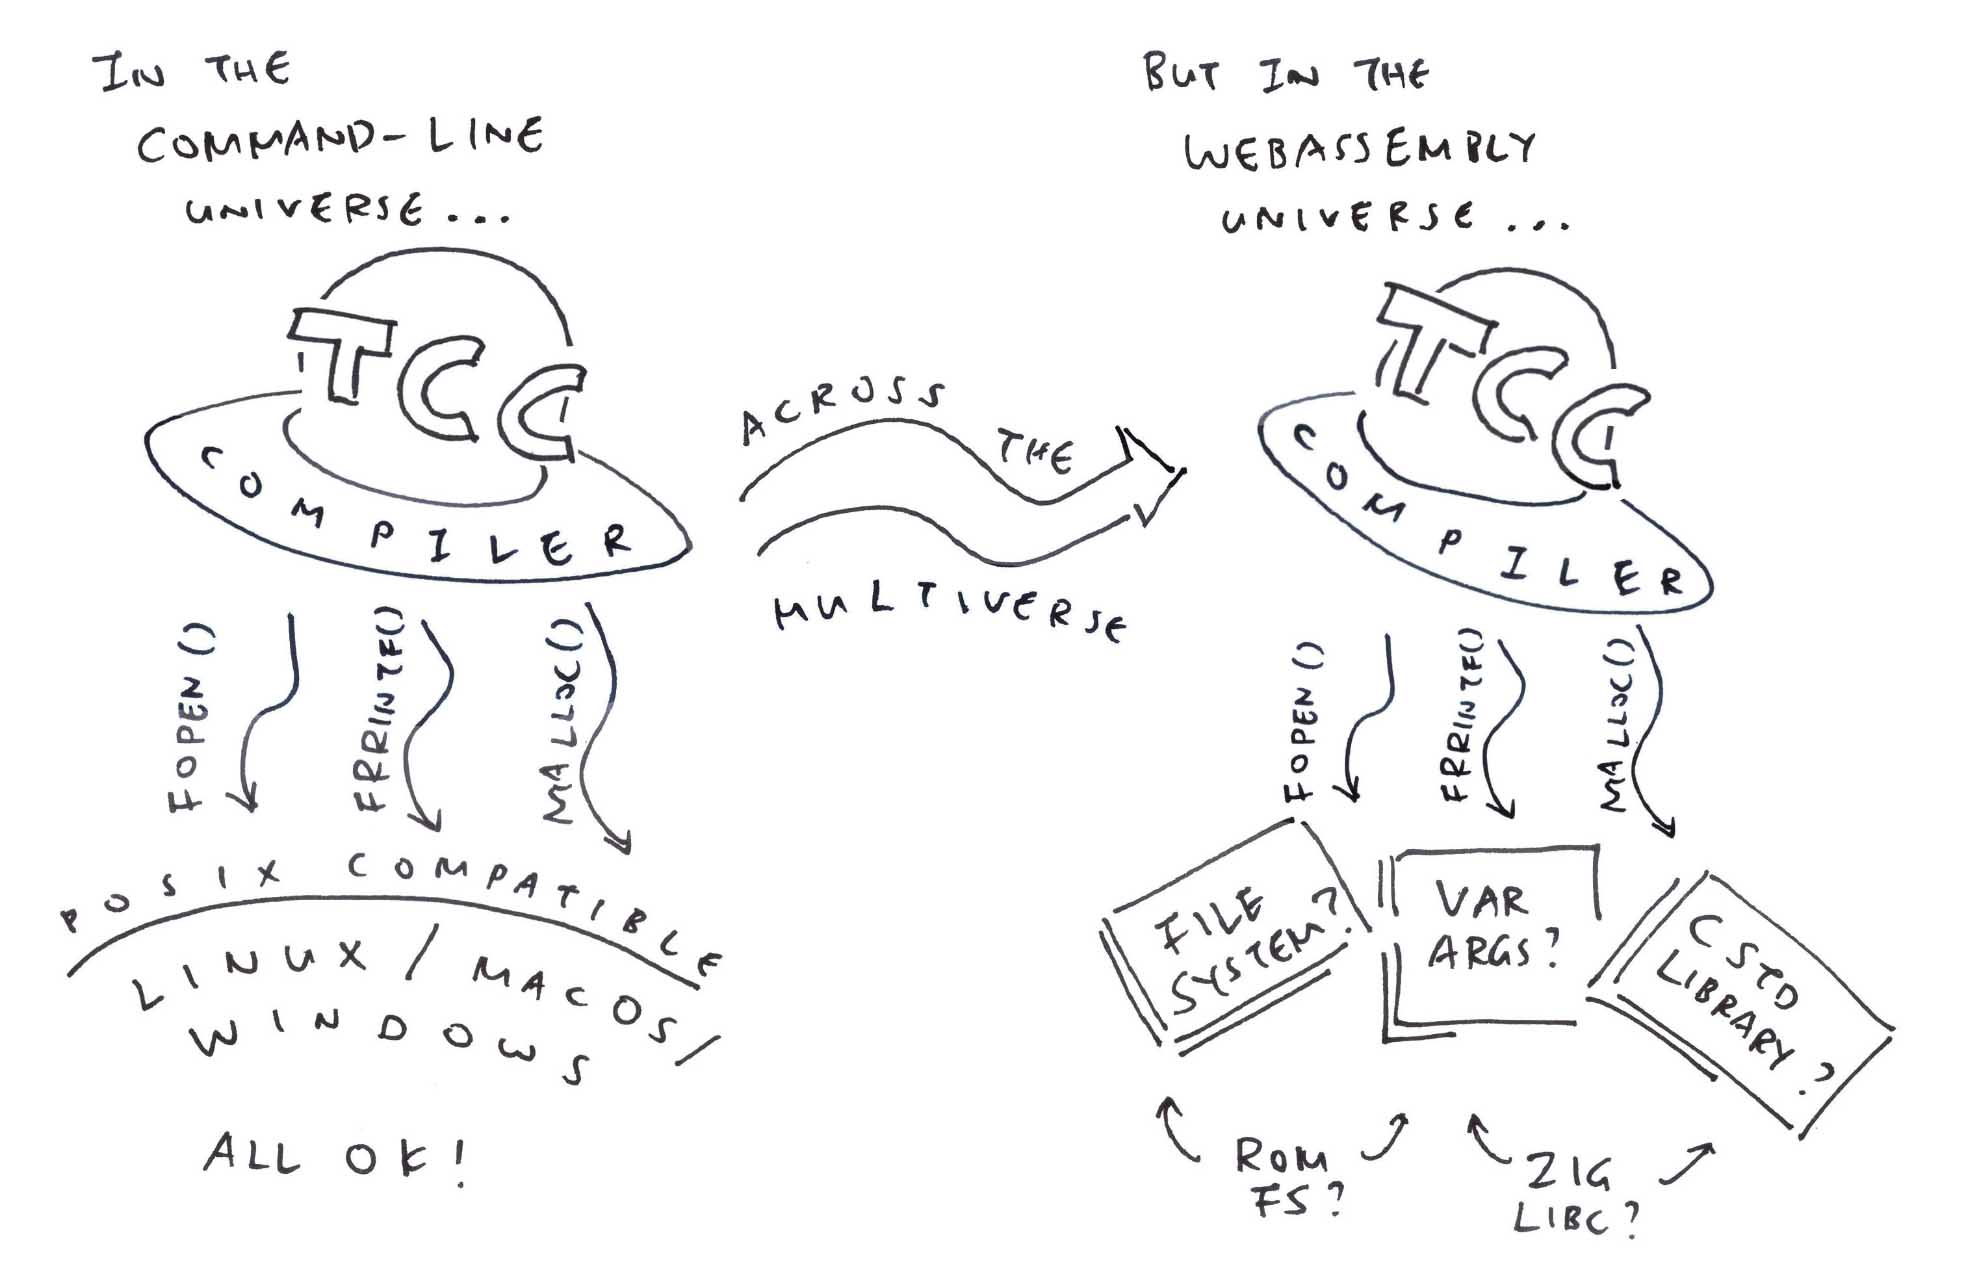 IN THE
COMMAND-LINE
UNIVERSE...
TCC
COMPILER
FOPEN()
FRRINTF()
MALLOC()
POSIX COMPATIBLE
LINUX / MACOS/
WINDOWS
ALL OK!
ACROSS THE
MULTIVERSE
BUT IN THE
WEBASSEMBLY
UNIVERSE...
TCC
COMPILER
FOPEN()
FRRINTF()
MALLOC()
FILE
SYSTEM?
VAR
ARGS?
C STD
LIBRARY?
ROM
FS?
ZIG
LIBC?